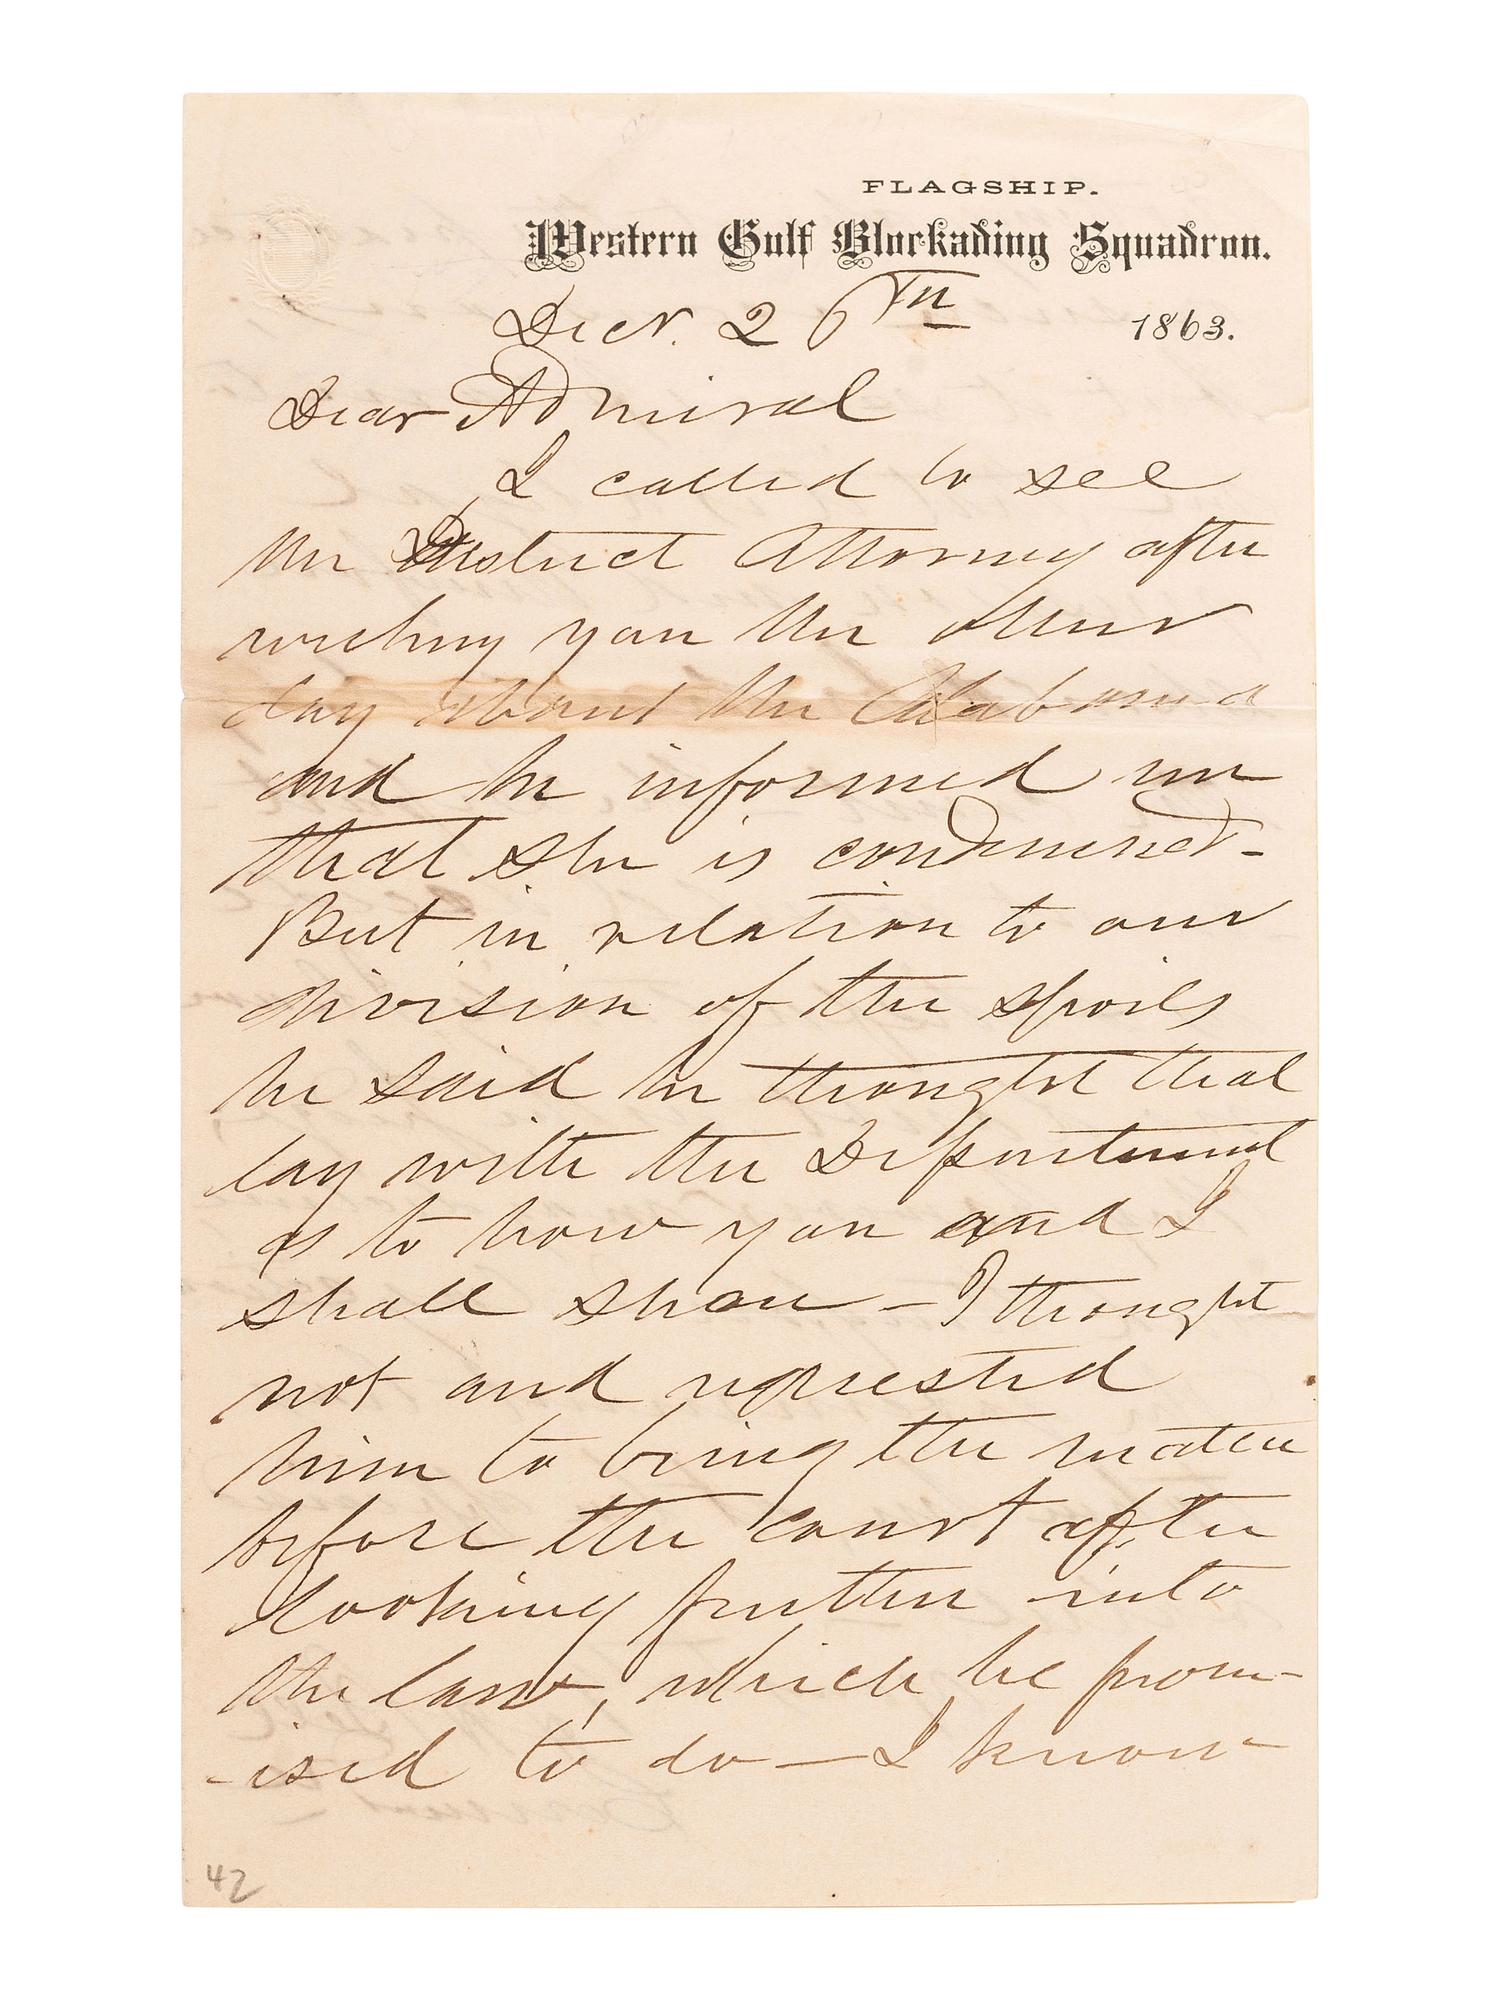 FLAGSHIP.
Western Gulf Blockading Squadron.
Decr. 26th 1863.
Dear Admiral
I called to see
the District Attorney after
writing you the other
day about the Alabama
and he informed me
that she is condemned -
But in relation to our
division of the spoils
he said he thought that
lay with the Department
as to how you and I
shall share - I thought
not and requested
him to bring the matter
before the court after
looking further into
the law, which he prom-
-ised to do - I know
42